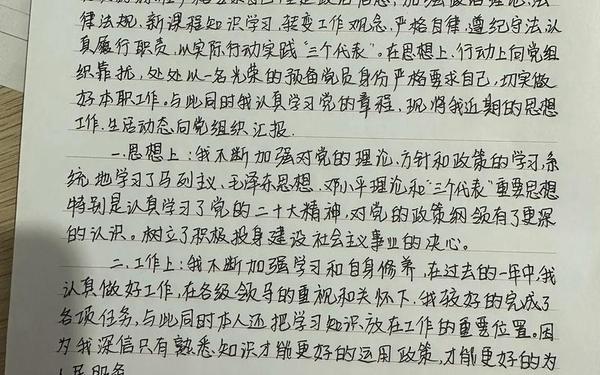 律法规,新课程知识学习,转变工作观念,严格自律,遵纪守法,认
真履行职责,以实际行动实践“三个代表”。在思想上,行动上向党组
织靠拢,处处以一名光荣的预备党员身份严格要求自己,切实做
好本职工作。与此同时我认真学习党的章程,现将我近期的思想
工作,生活动态向党组织汇报.
一.思想上:我不断加强对党的理论、方针和政策的学习,系
统地学习了马列主义、毛泽东思想、邓小平理论和“三个代表”重要思想
特别是认真学习了党的二十大精神,对党的政策纲领有了更深
的认识。树立了积极投身建设社会主义事业的决心。
二.工作上:我不断加强学习和自身修养,在过去的一年中,我
认真做好工作,在各级领导的重视和关怀下,我较好的完成了
各项任务,与此同时本人还把学习知识放在工作的重要位置。因
为我深信只有熟悉知识才能更好的运用政策,才能更好的为
人民服务